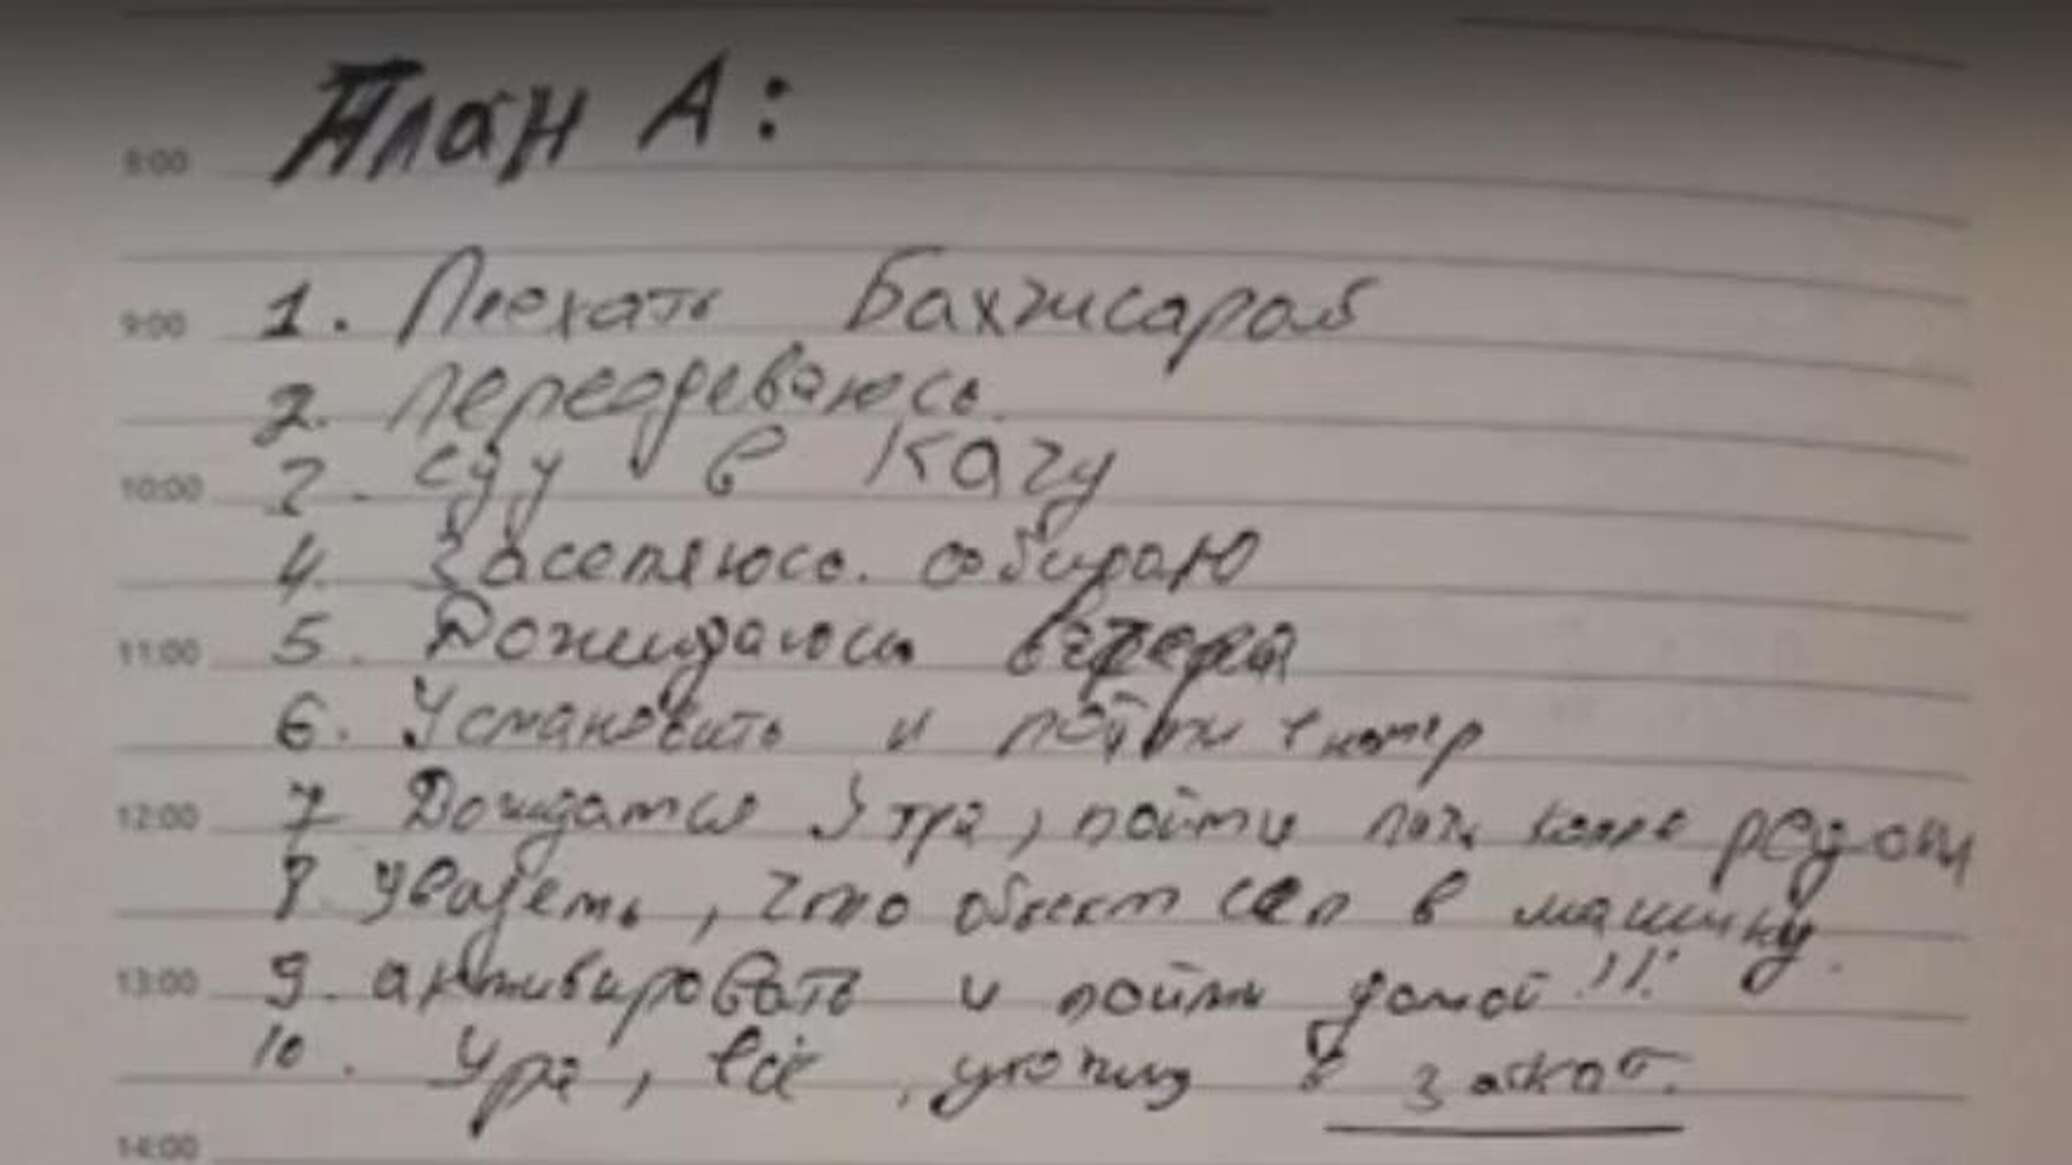 План А:
8:00
9:00 1. Поехать Бахжисарай
2. переодеваюсь.
10:00 3. еду в Качу
4. Заселяюсь. собираю
11:00 5. Дожидаюсь вечера
6. Установить и пойти в номер
12:00 7 Дождатся Утра, пойти
8. Уведеть, что объект сел в машину.
13:00 9. активировать и пойти домой!!!
10. Ура, всё, ухожу в закат.
14:00